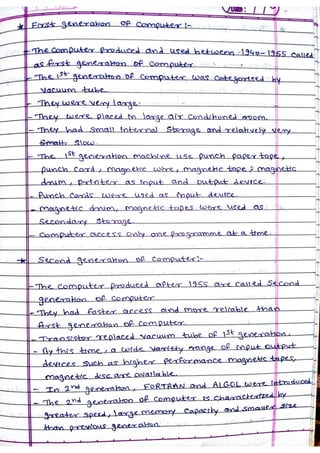 * First generation of Computer :-
- The Computer produced and used between 1940-1955 called
as first generation of Computer
- The 1st generation of computer was categorised by
vacuum tube.
- They were very large.
- They were placed in large air conditioned room.
- They had small Internal Storage and relatively very
Small. Slow.
- The 1st generation machine use punch paper tape,
punch card, magnetic wire, magnetic tape, magnetic
drum, printer as Input and output device.
- Punch Cards were used as Input device.
- magnetic drum, magnetic tapes were used as
Secondary Storage.
- Computer access only one programme at a time.
* Second generation of Computer:-
- The Computer produced after 1955 are called Second
generation of Computer
- They had faster access and more reliable than
first generation of Computer.
- Transistor replaced vacuum tube of 1st generation.
- By this time, a wide variety range of input output
devices such as higher performance magnetic tapes,
magnetic disc are available.
- In 2nd generation, FORTRAN and ALGOL were Introduced
- The 2nd generation of computer is characterized by
greater speed, large memory capacity and smaller size
than previous generation.